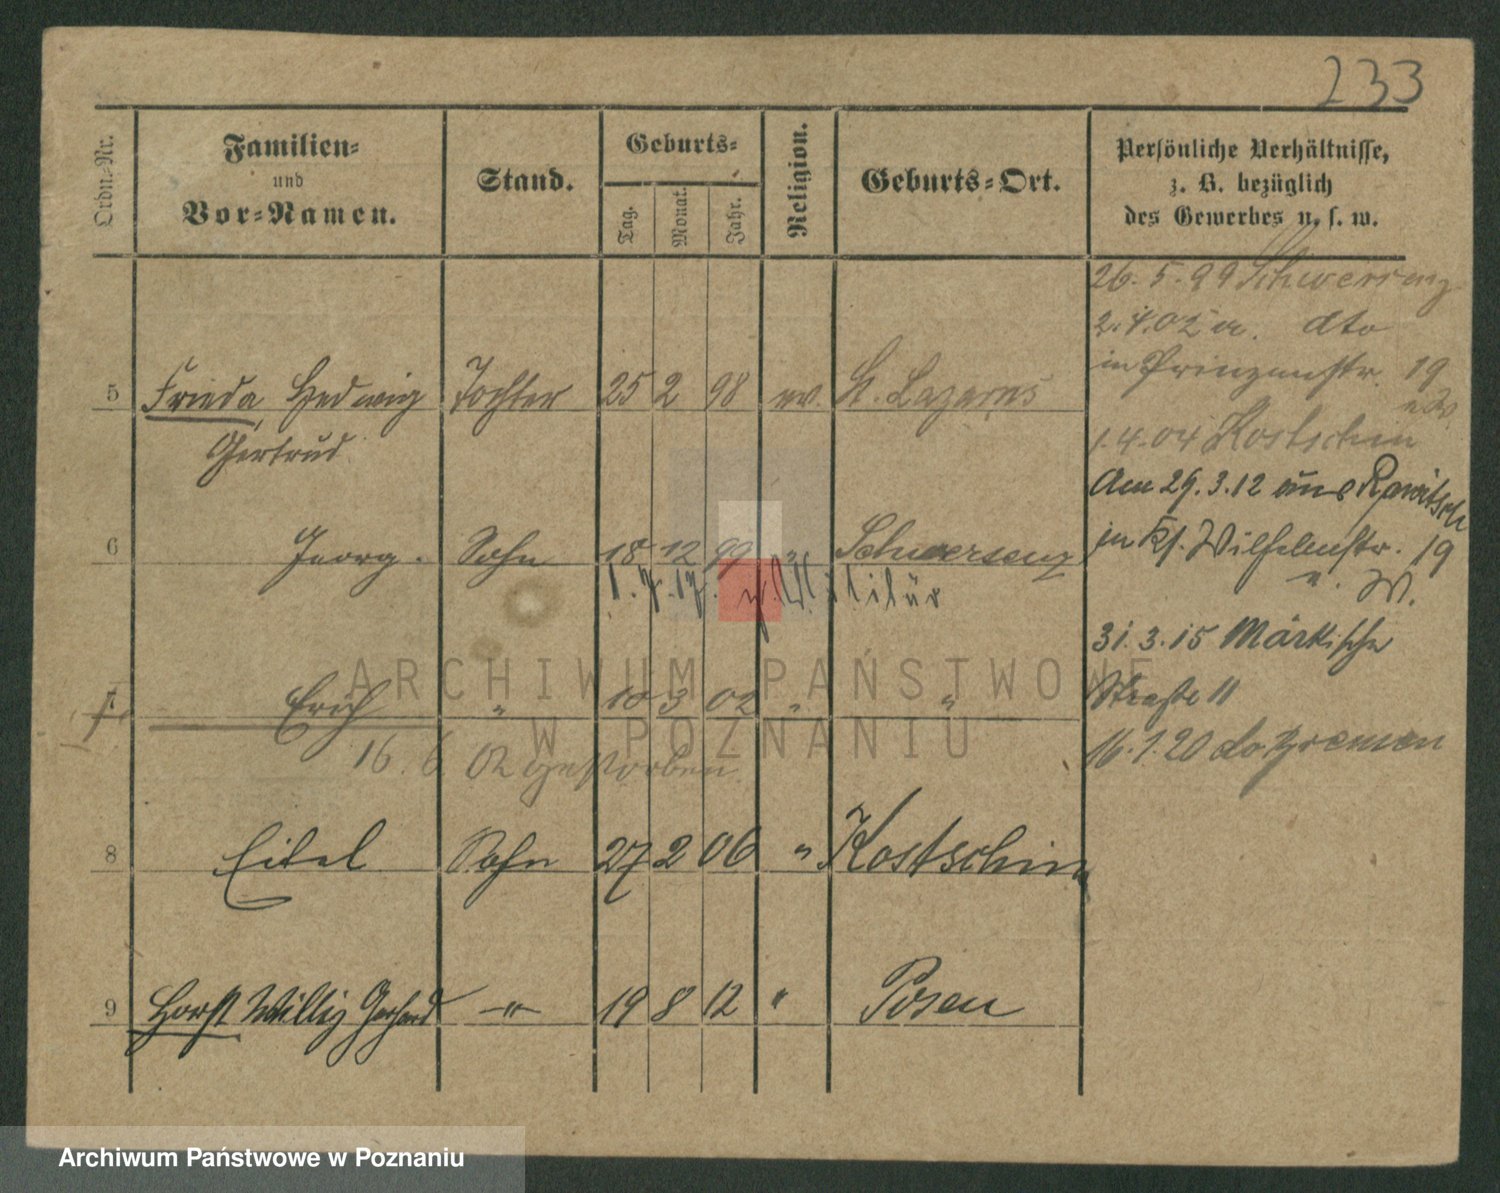 233
Ordn.-Nr.
Familien-
und
Vor-Namen.
Stand.
Geburts-
Tag.
Monat.
Jahr.
Religion.
Geburts-Ort.
Persönliche Verhältnisse,
z. B. bezüglich
des Gewerbes u. s. w.
26. 5. 99 Schwersenz
2. 4. 02 a. dto
in Prinzenstr. 19
5 Frieda, Hedwig Tochter 25 2 98 ev. St. Lazarus
Gertrud
1.4.04 Kostschin
Am 29.3.12 aus Rawitsch
in Kl. Wilhelmstr. 19
u. W.
6 Georg. Sohn 18 12 99 " Schwersenz
1. 7. 17. z. Militär
31.3.15 Märkische
Straße 11
16.1.20 Bremen
7 Erich " 10 3 02 " "
16. 6. 02 gestorben.
8 Eitel Sohn 27 2 06 " Kostschin
9 Horst Willy Gerhard -"- 19 8 12 " Posen
ARCHIWUM PAŃSTWOWE
W POZNANIU
Archiwum Państwowe w Poznaniu